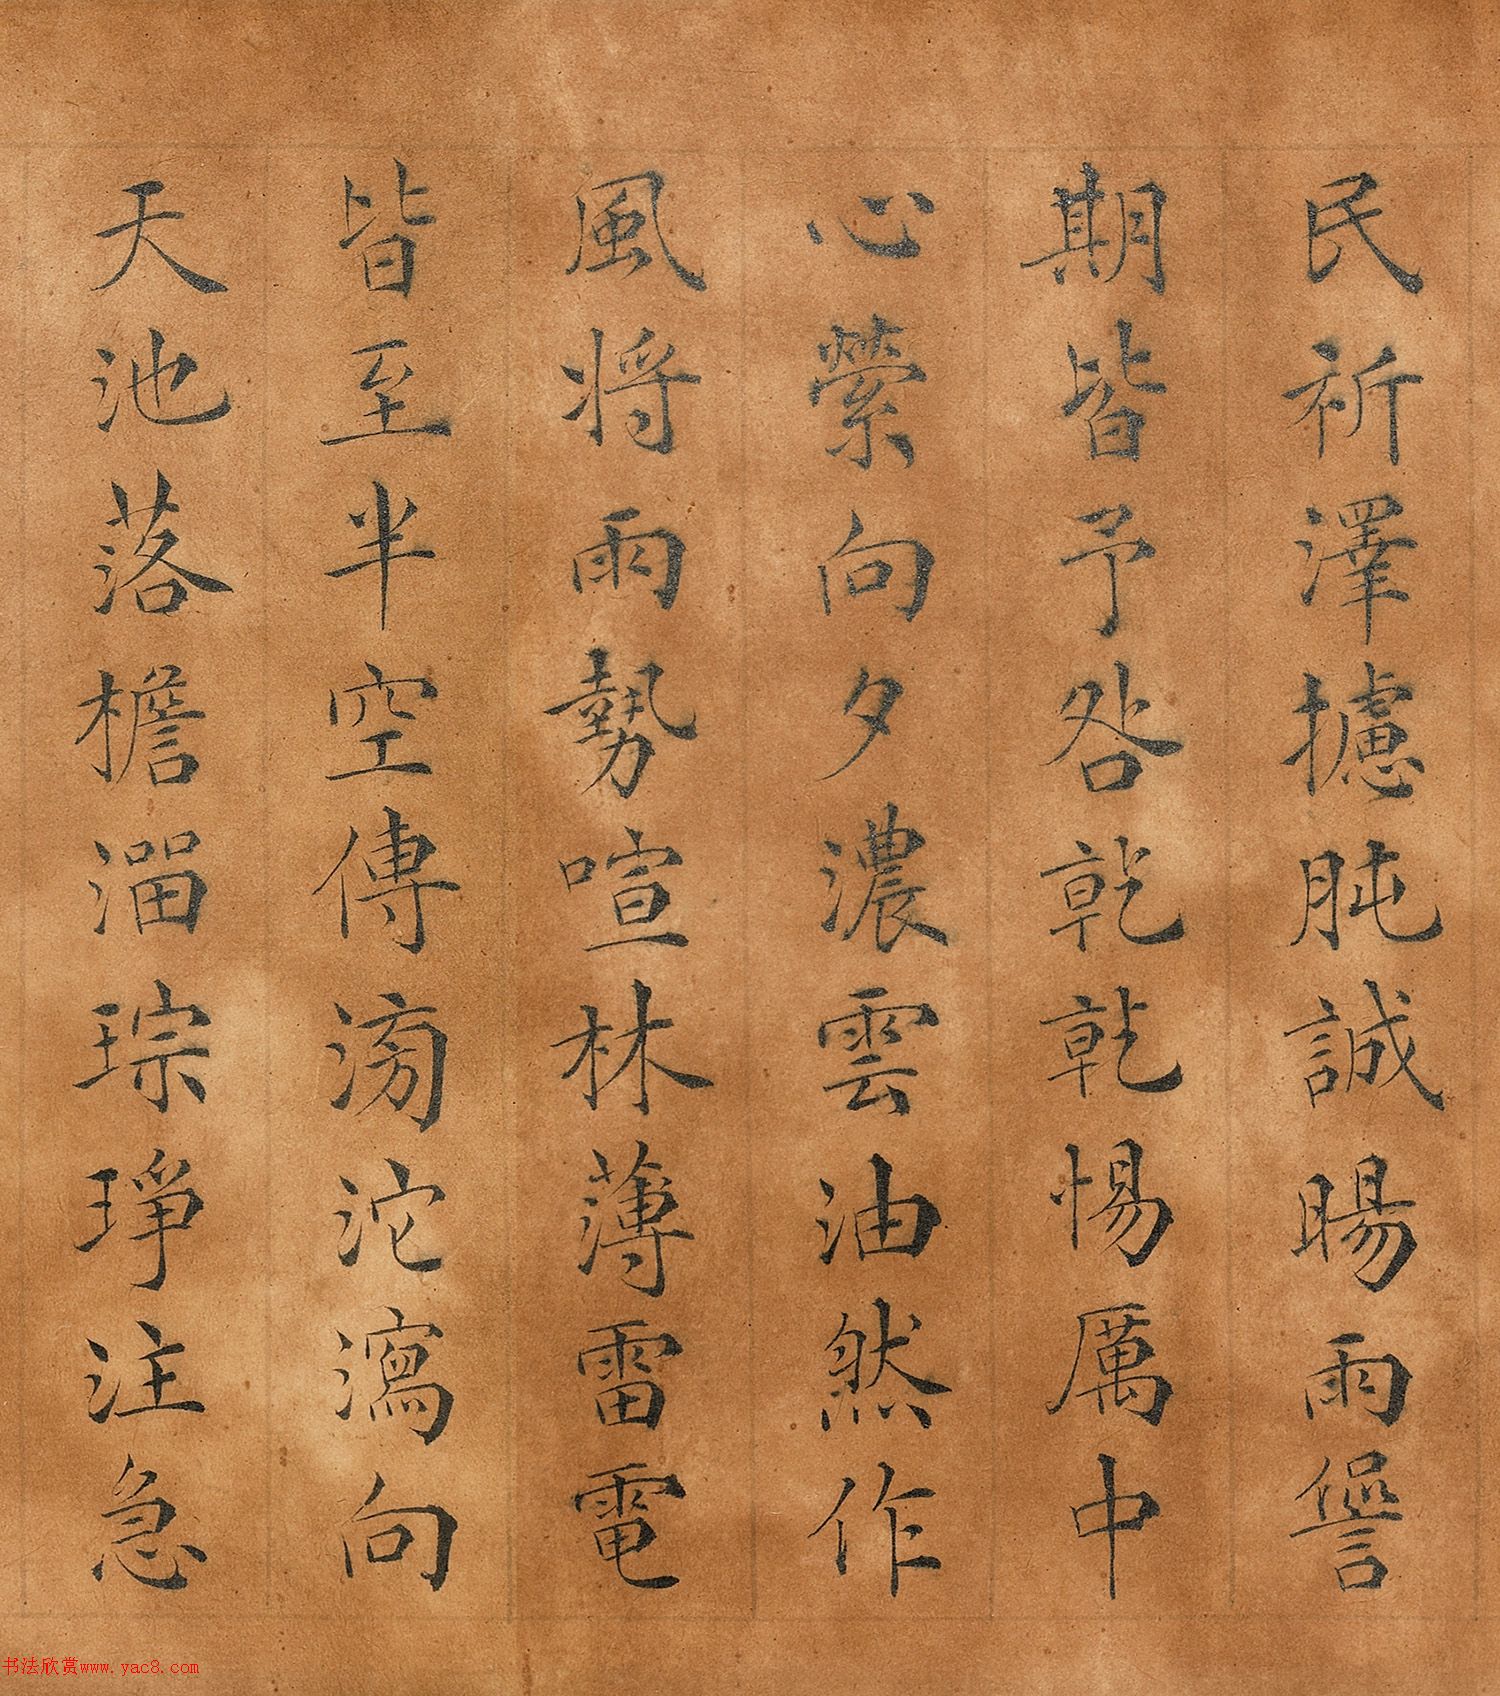 民祈澤攄肫誠暘雨諐
期皆予咎乾乾惕厲中
心縈向夕濃雲油然作
風將雨勢喧林薄雷電
皆至半空傳滂沱瀉向
天池落檐溜琮琤注急
书法欣赏www.yac8.com